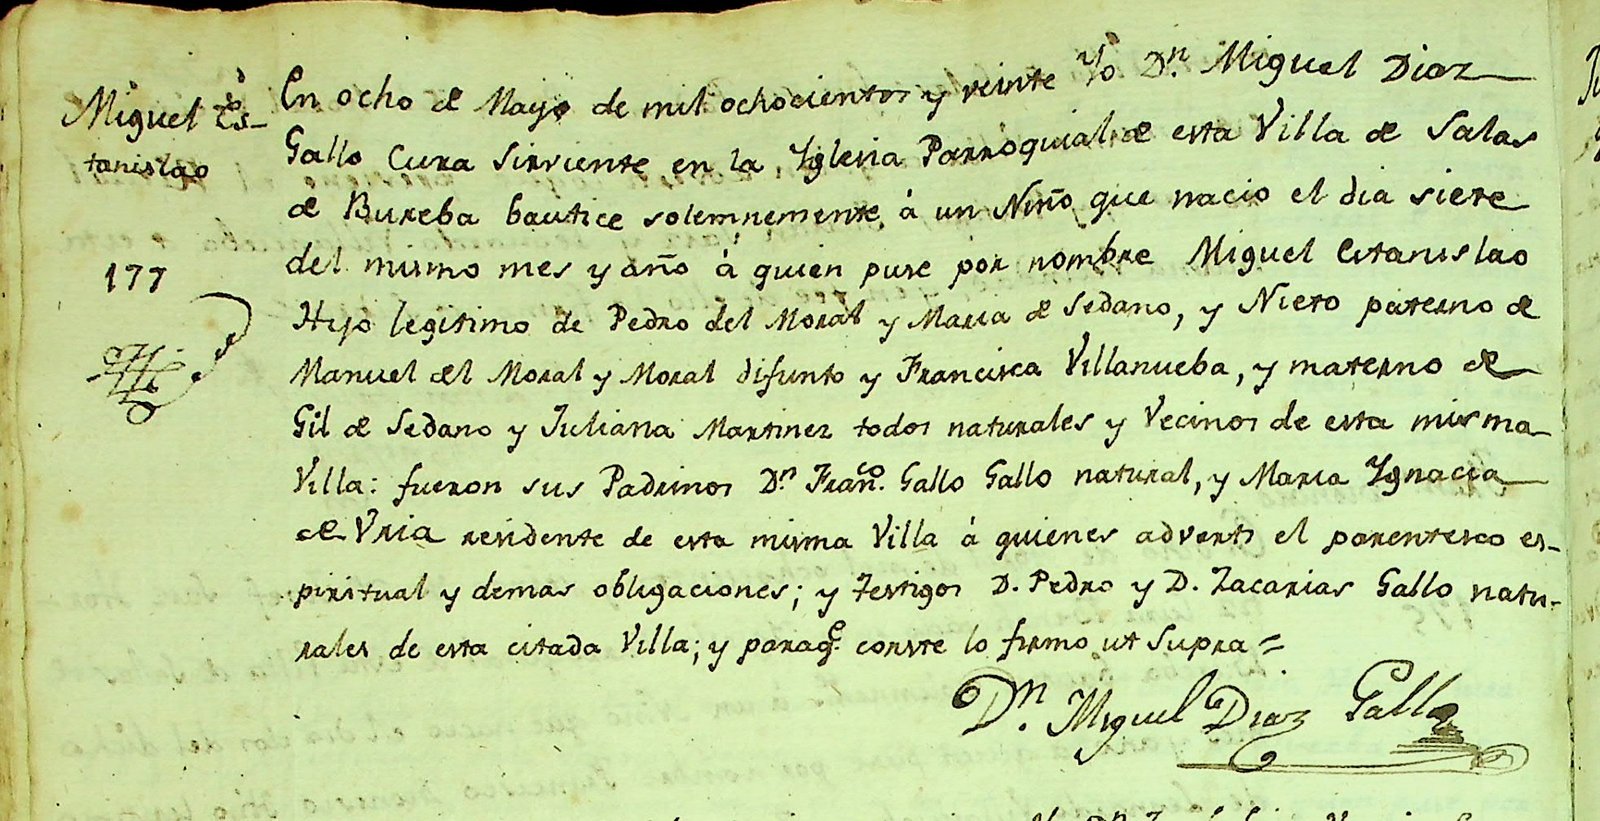 Miguel Es-
tanislao
177
En ocho de Mayo de mil ochocientos y veinte Yo Dn. Miguel Diaz
Gallo Cura Sirviente en la Yglesia Parroquial de esta Villa de Salas
de Bureba bautice solemnemente á un Niño que nacio el dia siete
del mismo mes y año á quien puse por nombre Miguel Estanislao
Hijo legitimo de Pedro del Moral y Maria de Sedano, y Nieto paterno de
Manuel del Moral y Moral difunto y Francisca Villanueba, y materno de
Gil de Sedano y Juliana Martinez todos naturales y Vecinos de esta misma
Villa: fueron sus Padrinos Dn. Franco. Gallo Gallo natural, y Maria Ygnacia
de Vria residente de esta misma Villa á quienes adverti el parentesco es-
piritual y demas obligaciones; y Testigos D. Pedro y D. Zacarias Gallo natu-
rales de esta citada Villa; y paraqe. conste lo firmo ut Supra =
Dn. Miguel Diaz Gallo